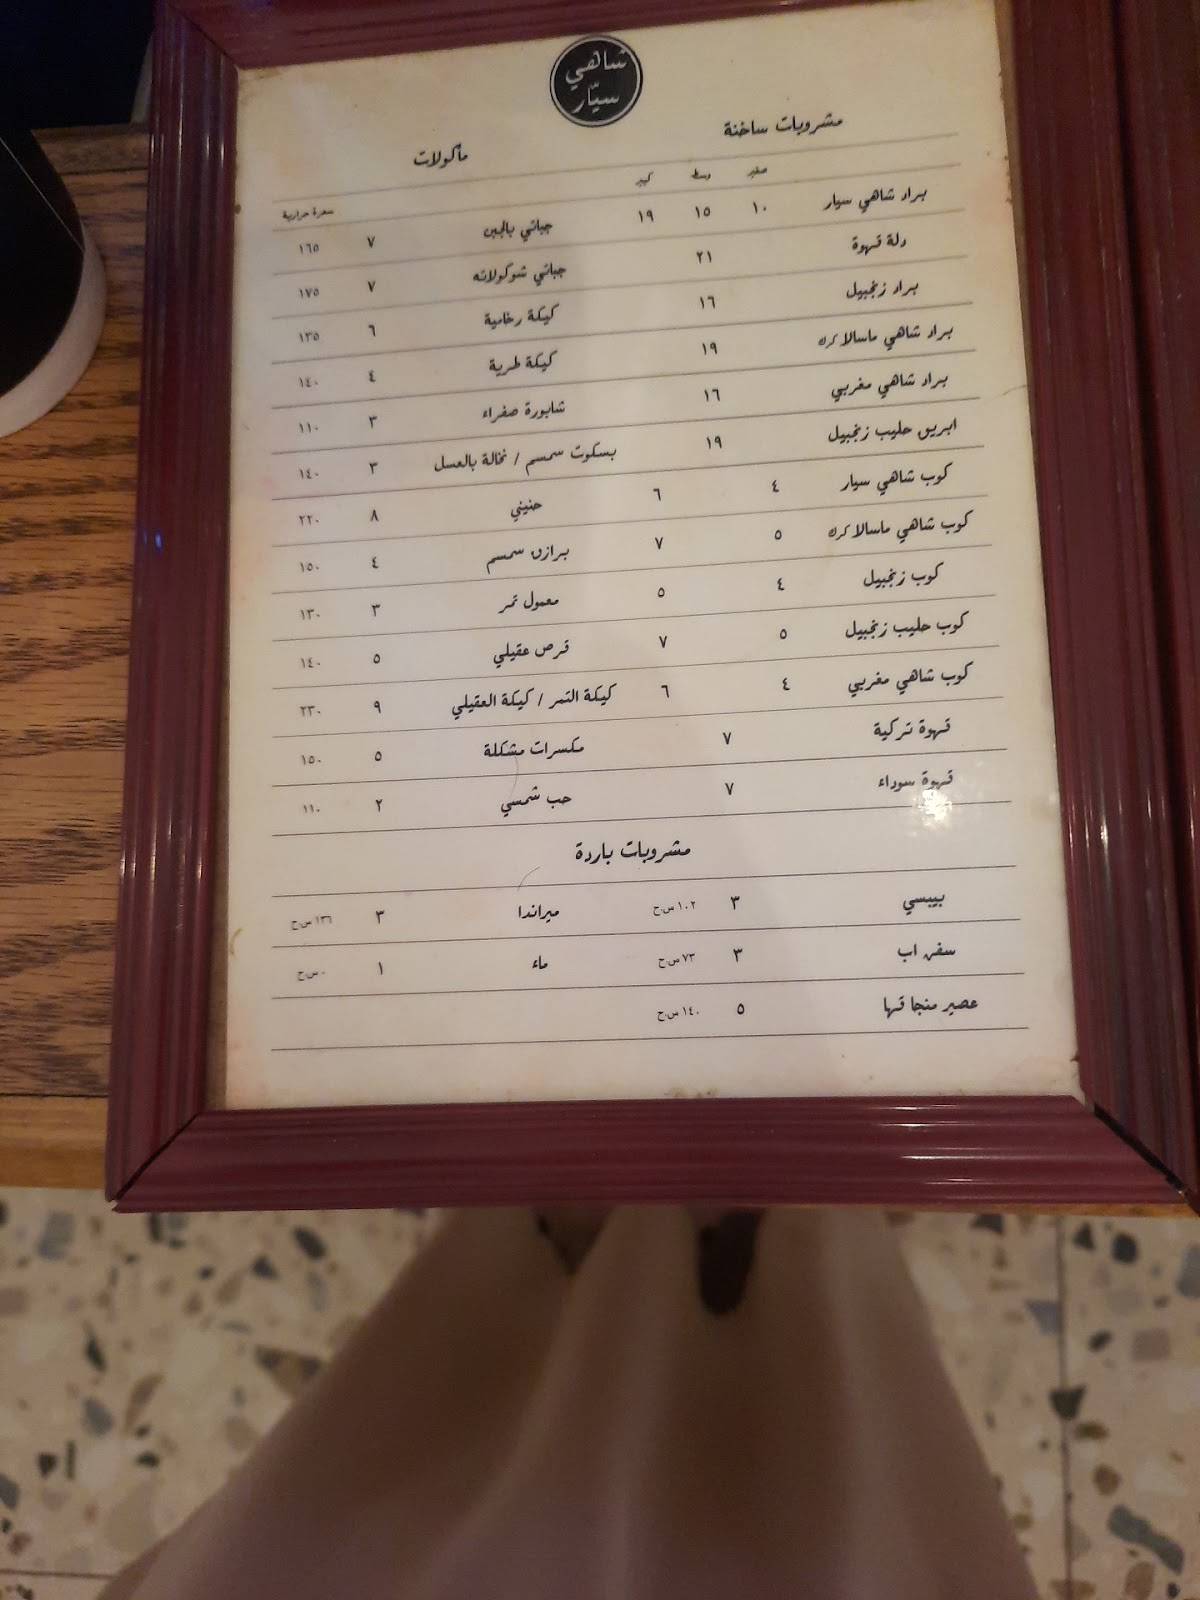 شاهي
سيّار
مشروبات ساخنة
صغير وسط كبير
براد شاهي سيار ١٠ ١٥ ١٩
دلة قهوة ٢١
براد زنجبيل ١٦
براد شاهي ماسالا كرك ١٩
براد شاهي مغربي ١٦
ابريق حليب زنجبيل ١٩
كوب شاهي سيار ٤ ٦
كوب شاهي ماسالا كرك ٥ ٧
كوب زنجبيل ٤ ٥
كوب حليب زنجبيل ٥ ٧
كوب شاهي مغربي ٤ ٦
قهوة تركية ٧
قهوة سوداء ٧
مأكولات
سعرة حرارية
جباتي بالجبن ٧ ١٦٥
جباتي شوكولاته ٧ ١٧٥
كيكة رخامية ٦ ١٣٥
كيكة طرية ٤ ١٤٠
شابورة صفراء ٣ ١١٠
بسكوت سمسم / نخالة بالعسل ٣ ١٤٠
حنيني ٨ ٢٢٠
برازق سمسم ٤ ١٥٠
معمول تمر ٣ ١٣٠
قرص عقيلي ٥ ١٤٠
كيكة التمر / كيكة العقيلي ٩ ٢٣٠
مكسرات مشكلة ٥ ١٥٠
حب شمسي ٢ ١١٠
مشروبات باردة
بيبسي ٣ ١٠٢ س.ح ميراندا ٣ ١٣٦ س.ح
سفن اب ٣ ٧٣ س.ح ماء ١ ٠ س.ح
عصير منجا قها ٥ ١٤٠ س.ح